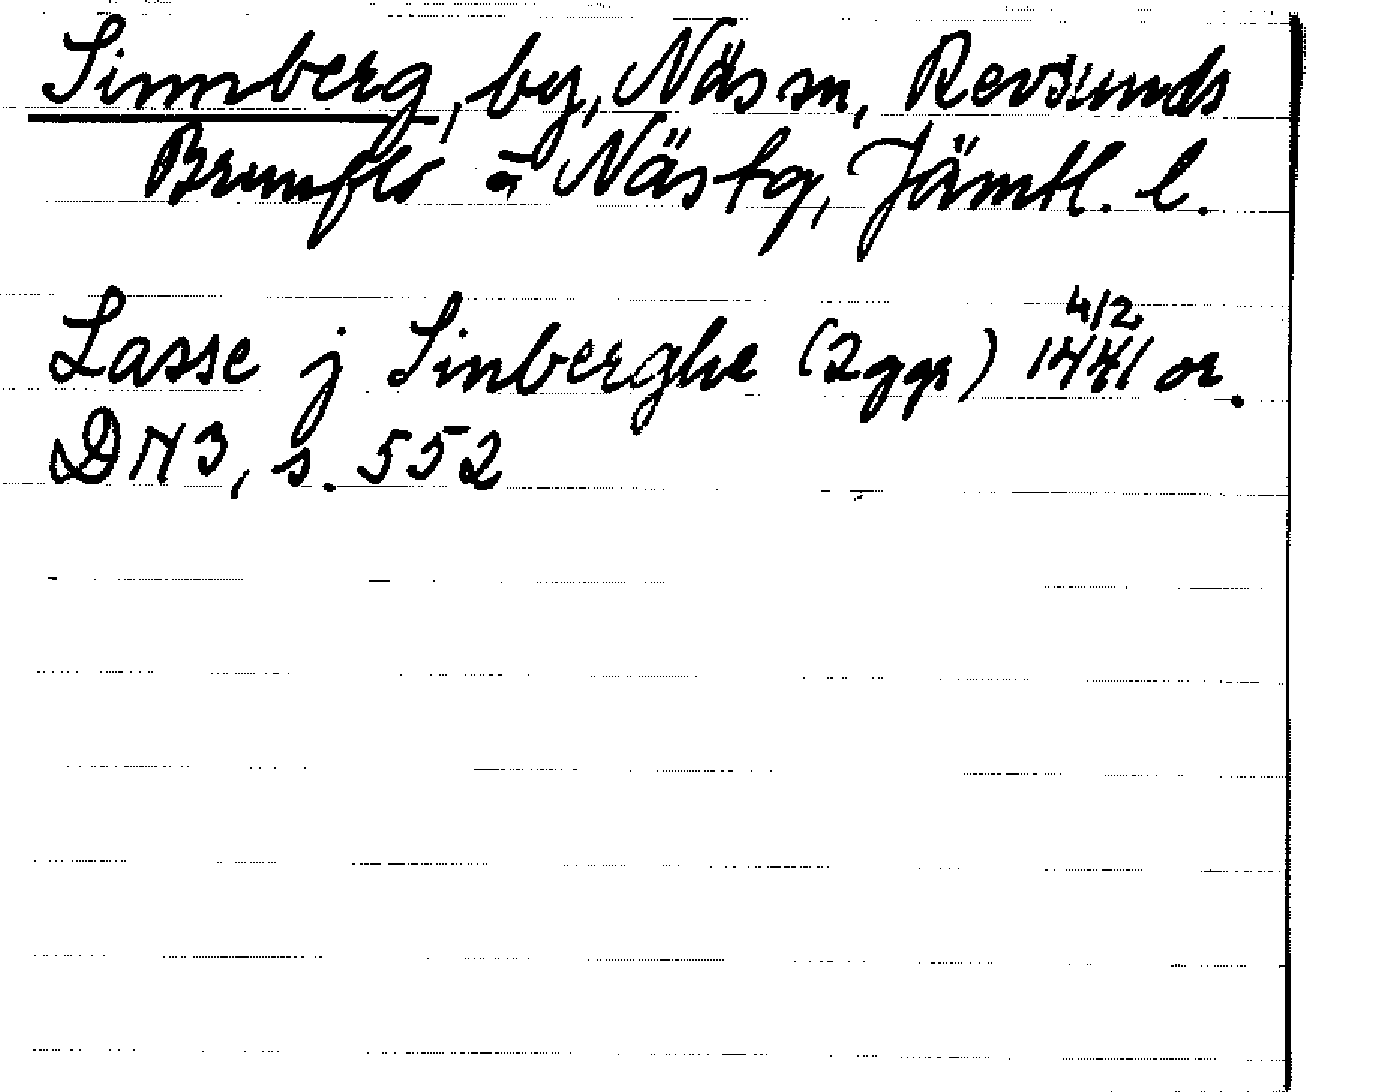 Sinnberg, by, Näs sn, Revsunds
Brunflo o Näs tg, Jämtl. l.
Lasse j Sinberghe (2ggr) 4/2 1441 or.
DN 3, s. 552